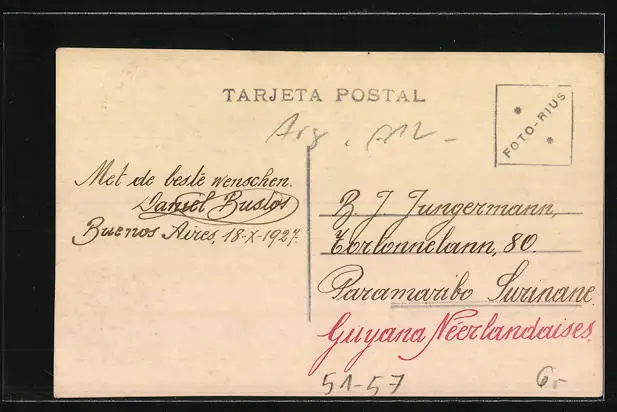 TARJETA POSTAL
FOTO-RIUS
Arg.
Met de beste wenschen.
Daniel Bustos
Buenos Aires, 18-X-1927.
B. J. Jungermann,
80.
Paramaribo Surinane.
Guyana Néerlandaises.
51-57
6,-